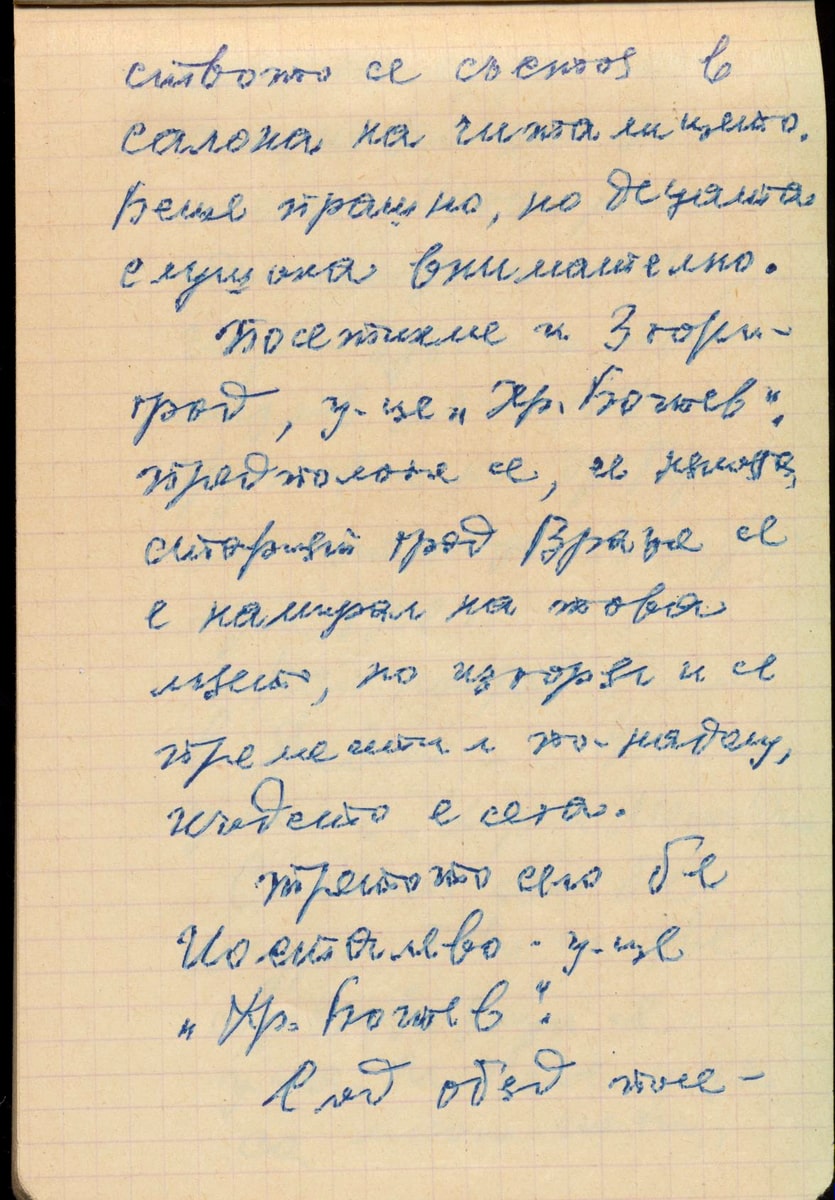 ството се състоя в
салона на читалището.
Беше прашно, но децата
слушаха внимателно.
Посетихме и Згори-
град, у-ще „Хр. Ботев“.
Предполага се, че
старият град Враца се
е намирал на това
място, но изгорял и се
преместил по-надолу,
където е сега.
Третото село бе
Костелево - у-ще
„Хр. Ботев“.
След обяд посе-